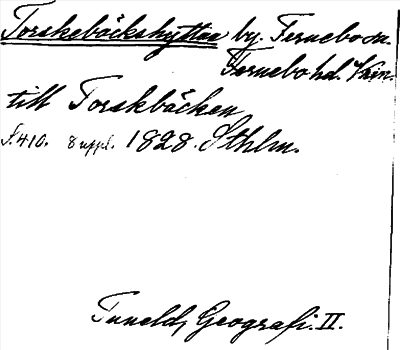 Torskebäckshyttan by. Fernebo sn.
Fernebo hd. Väm.
till Torskbäcken
S. 410. 8 uppl. 1828. Sthlm.
Tuneld, Geografi. II.